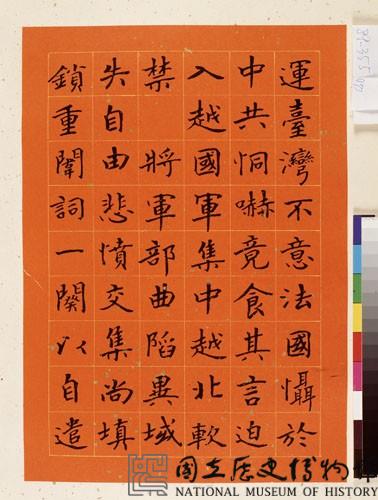 運臺灣不意法國懾於
中共恫嚇竟食其言迫
入越國軍集中越北軟
禁 將軍部曲陷異域
失自由悲憤交集尚填
鎖重闈詞一闋以自遣
國立歷史博物館
NATIONAL MUSEUM OF HISTORY